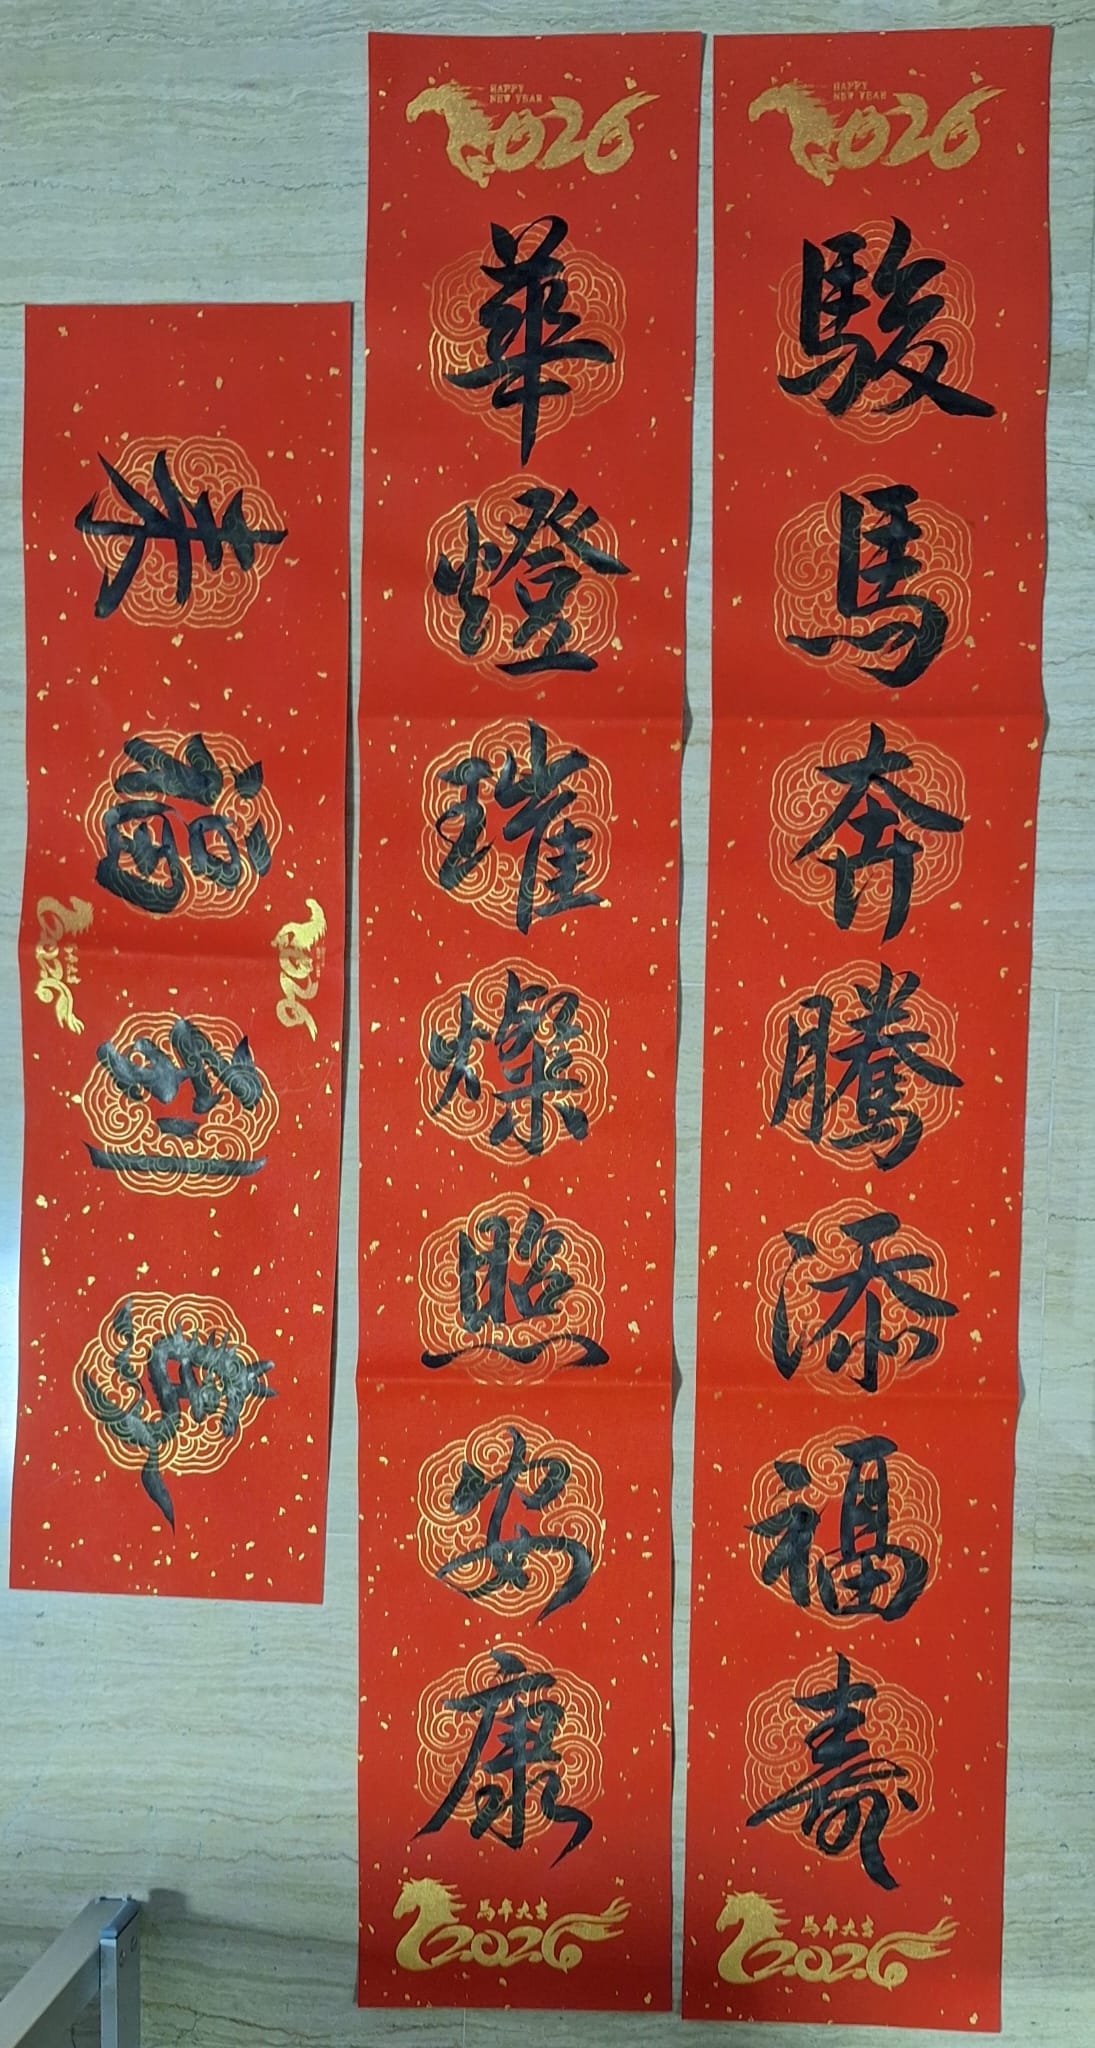 HAPPY
NEW YEAR
2026
駿馬奔騰添福壽
馬年大吉
2026
HAPPY
NEW YEAR
2026
華燈璀燦照安康
馬年大吉
2026
馬到福来
2026
2026